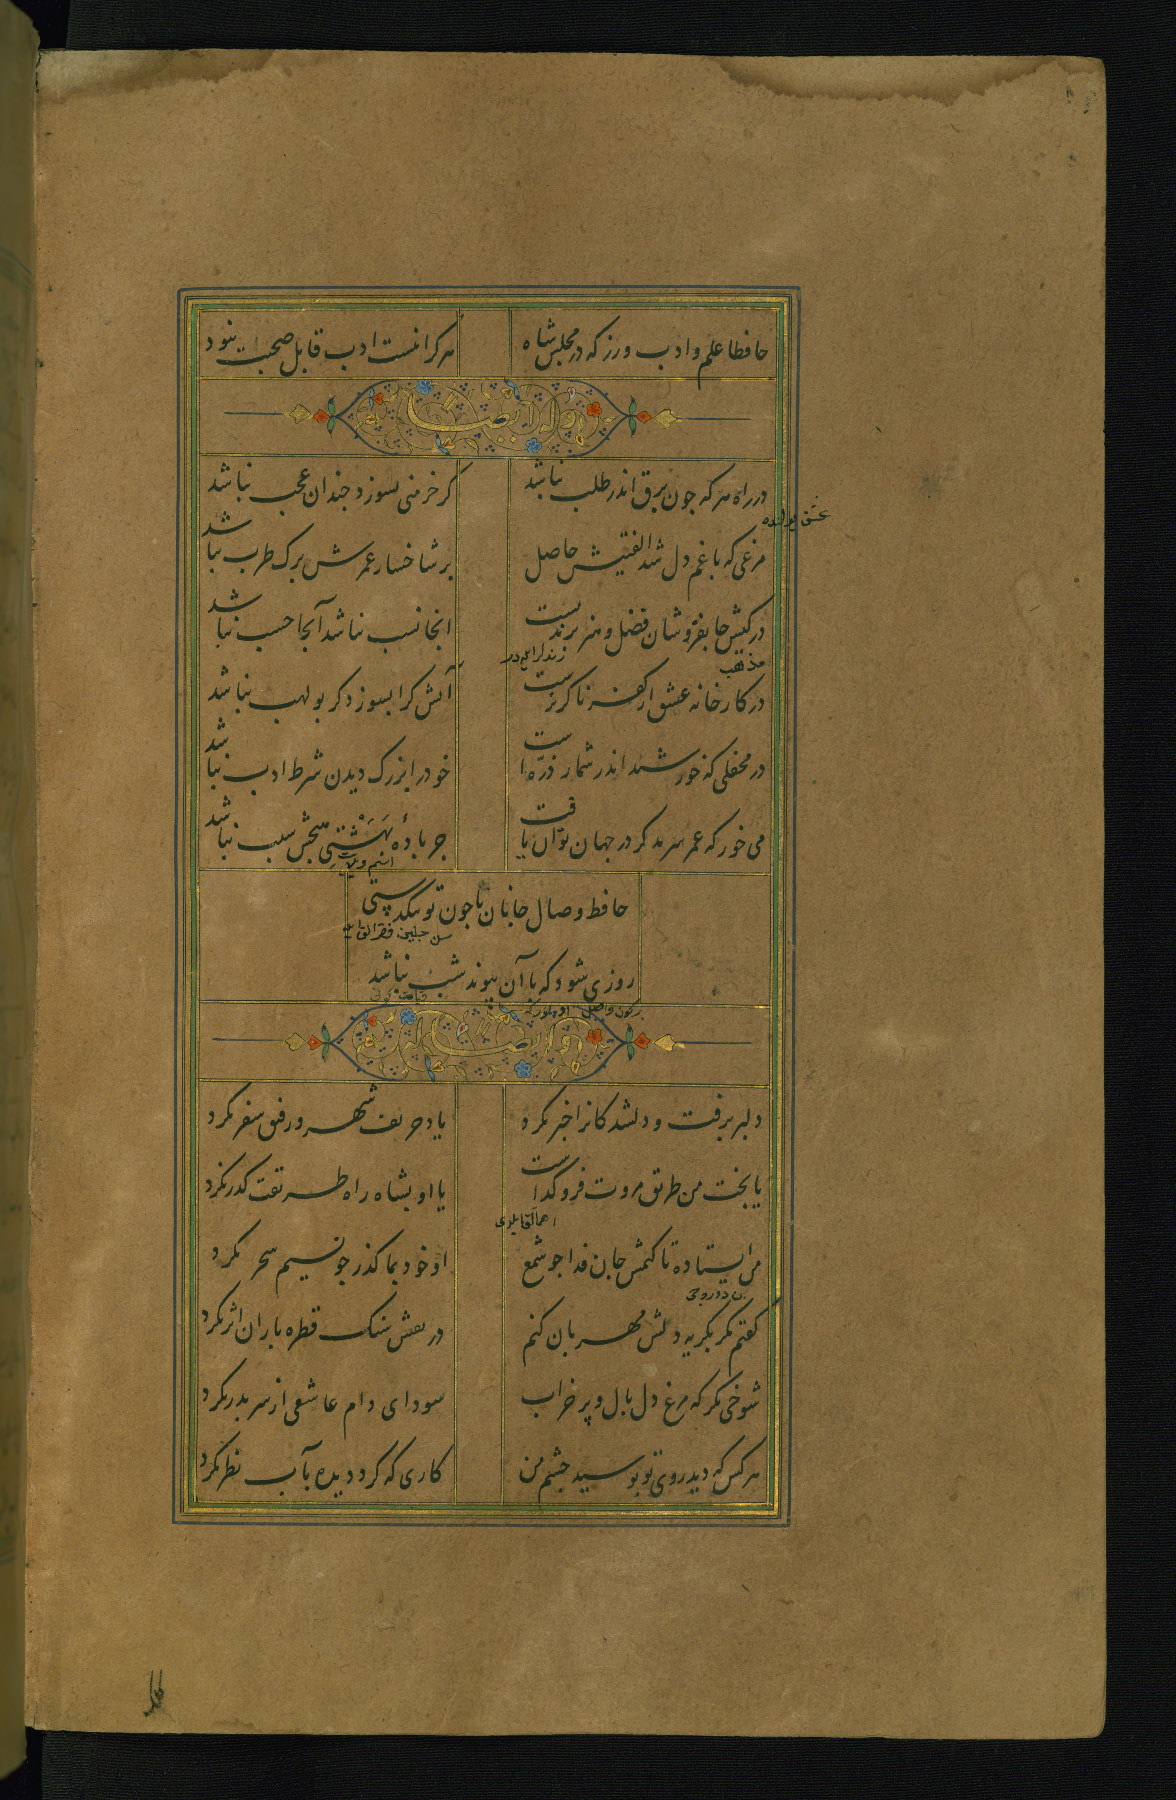 حافظا علم و ادب ورز که در مجلس شاه هر کرا نیست ادب قابل صحبت نبود
وله ایضا
در راه هر که جون برق اندر طلب نباشد کر خرمنی بسوزد جندان عجب نباشد
عشق یولنده
مرغی که با غم دل شد الفتیش حاصل بر شاخسار عمرش برک طرب نباشد
در کیش جانفروشان فضل و هنر برندیست انجا نسب نباشد آنجا حسب نباشد
مذهب
در کارخانه عشق از کفر ناکزیرست آتش کرا بسوزد کر بولهب نباشد
در محفلی که خورشید اندر شمار ذره است خود را بزرک دیدن شرط ادب نباشد
می خور که عمر سرمد کر در جهان توان یافت جز بادهٔ بهشتی هیچش سبب نباشد
حافظ وصال جانان با جون تو تنکدستی
روزی شود که با آن پیوند شب نباشد
وله ایضا
دلبر برفت و دلشدکانرا خبر نکرد یاد حریف شهر و رفیق سفر نکرد
یا بخت من طریق مروت فروکداست یا او بشاه راه طریقت کدر نکرد
من ایستاده تا کنمش جان فدا جو شمع او خود بما کذر جو نسیم سحر نکرد
کفتم مکر بکریه دلش مهربان کنم در نقش سنک قطره باران اثر نکرد
شوخی مکر که مرغ دل بال و پر خراب سودای دام عاشقی از سر بدر نکرد
هر کس که دید روی تو بوسید جشم من کاری که کرد دیده بآب نظر نکرد